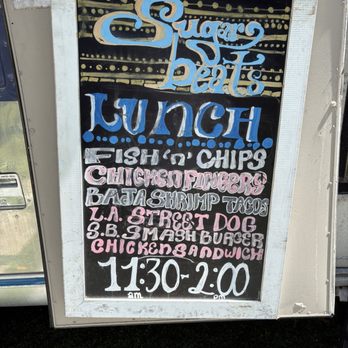 Sugar
beats
LUNCH
FISH 'n' CHIPS
CHICKEN FINGERS
BAJA SHRIMP TACOS
L.A. STREET DOG
S.B. SMASH BURGER
CHICKEN SANDWICH
11:30-2:00
am pm